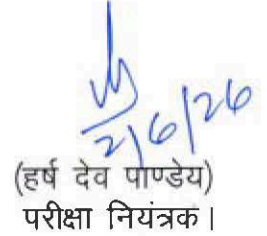 2/6/26
(हर्ष देव पाण्डेय)
परीक्षा नियंत्रक।